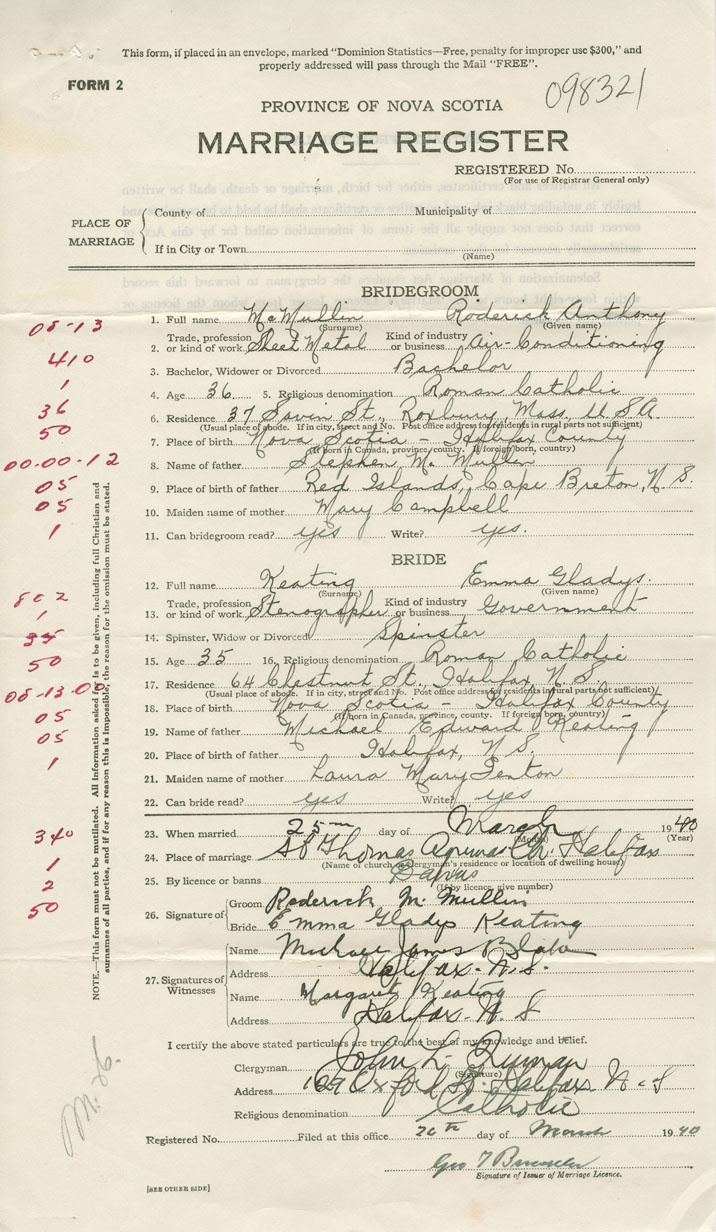 This form, if placed in an envelope, marked "Dominion Statistics—Free, penalty for improper use $300," and
properly addressed will pass through the Mail "FREE".
FORM 2
098321
PROVINCE OF NOVA SCOTIA
MARRIAGE REGISTER
REGISTERED No.
(For use of Registrar General only)
PLACE OF MARRIAGE
County of Municipality of
If in City or Town
(Name)
BRIDEGROOM
05-13
1. Full name McMullin Roderick Anthony
(Surname) (Given name)
410
2. Trade, profession or kind of work Sheet Metal Kind of industry or business Air-Conditioning
3. Bachelor, Widower or Divorced Bachelor
1
4. Age 36 5. Religious denomination Roman Catholic
36
6. Residence 37 Savin St., Roxbury, Mass, U S A
(Usual place of abode. If in city, street and No. Post office address for residents in rural parts not sufficient)
50
7. Place of birth Nova Scotia - Halifax County
(If born in Canada, province, county. If foreign born, country)
00-00-12
8. Name of father Stephen McMullin
05
9. Place of birth of father Red Islands, Cape Breton, N. S.
05
10. Maiden name of mother Mary Campbell
1
11. Can bridegroom read? yes Write? yes.
BRIDE
12. Full name Keating Emma Gladys.
(Surname) (Given name)
802
13. Trade, profession or kind of work Stenographer Kind of industry or business Government
1
14. Spinster, Widow or Divorced Spinster
35
15. Age 35 16. Religious denomination Roman Catholic
50
17. Residence 64 Chestnut St., Halifax, N. S.
(Usual place of abode. If in city, street and No. Post office address for residents in rural parts not sufficient)
05-13-00
18. Place of birth Nova Scotia - Halifax County
(If born in Canada, province, county. If foreign born, country)
05
19. Name of father Michael Edward Keating
05
20. Place of birth of father Halifax, N. S.
1
21. Maiden name of mother Laura Mary Fenton
22. Can bride read? yes Write? yes
340
23. When married 25 day of March 1940
(Month) (Year)
1
24. Place of marriage St Thomas Aquinas Ch. Halifax
(Name of church or clergyman's residence or location of dwelling house)
2
25. By licence or banns Banns
(If by licence, give number)
50
26. Signature of
Groom Roderick McMullin
Bride Emma Gladys Keating
27. Signatures of Witnesses
Name Michael James
Address Halifax-N.S.
Name Margaret Keating
Address Halifax-N. S
I certify the above stated particulars are true to the best of my knowledge and belief.
Clergyman John L.
(Signature)
Address 169 Oxford St. Halifax N. S
Religious denomination Catholic
Registered No. Filed at this office 26th day of March 1940
Geo
Signature of Issuer of Marriage Licence.
[SEE OTHER SIDE]
NOTE.—This form must not be mutilated. All information asked for is to be given, including full Christian and
surnames of all parties, and if for any reason this is impossible, the reason for the omission must be stated.